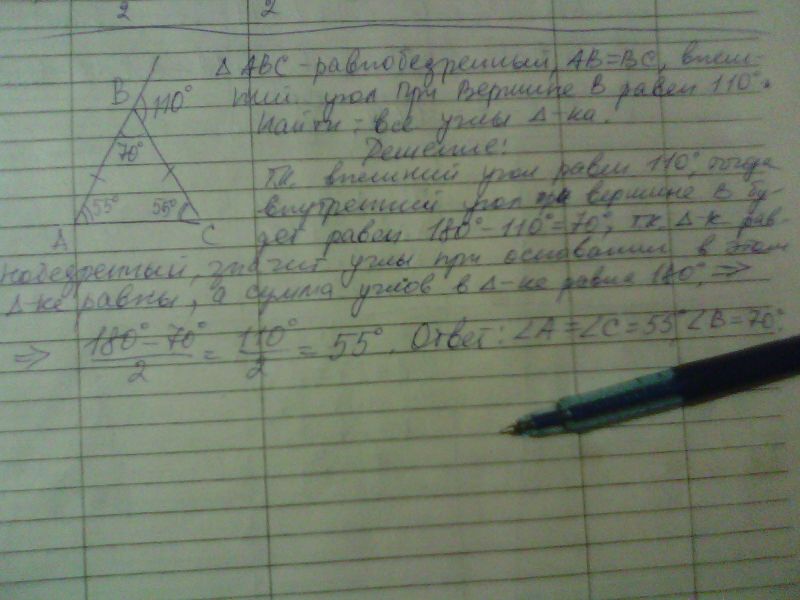 2 2
Δ ABC - равнобедренный, AB=BC, внеш-
ний угол при вершине B равен 110°.
Найти: все углы Δ-ка.
Решение:
Т.к. внешний угол равен 110°, тогда
внутренний угол при вершине B бу-
дет равен 180°-110°=70°, т.к. Δ-к рав-
нобедренный, значит углы при основании в этом
Δ-ке равны, а сумма углов в Δ-ке равна 180°, ⇒
⇒ 180°-70°/2 = 110°/2 = 55°. Ответ: ∠A=∠C=55°, ∠B=70°.
B 110°
70°
55° 55°
A C